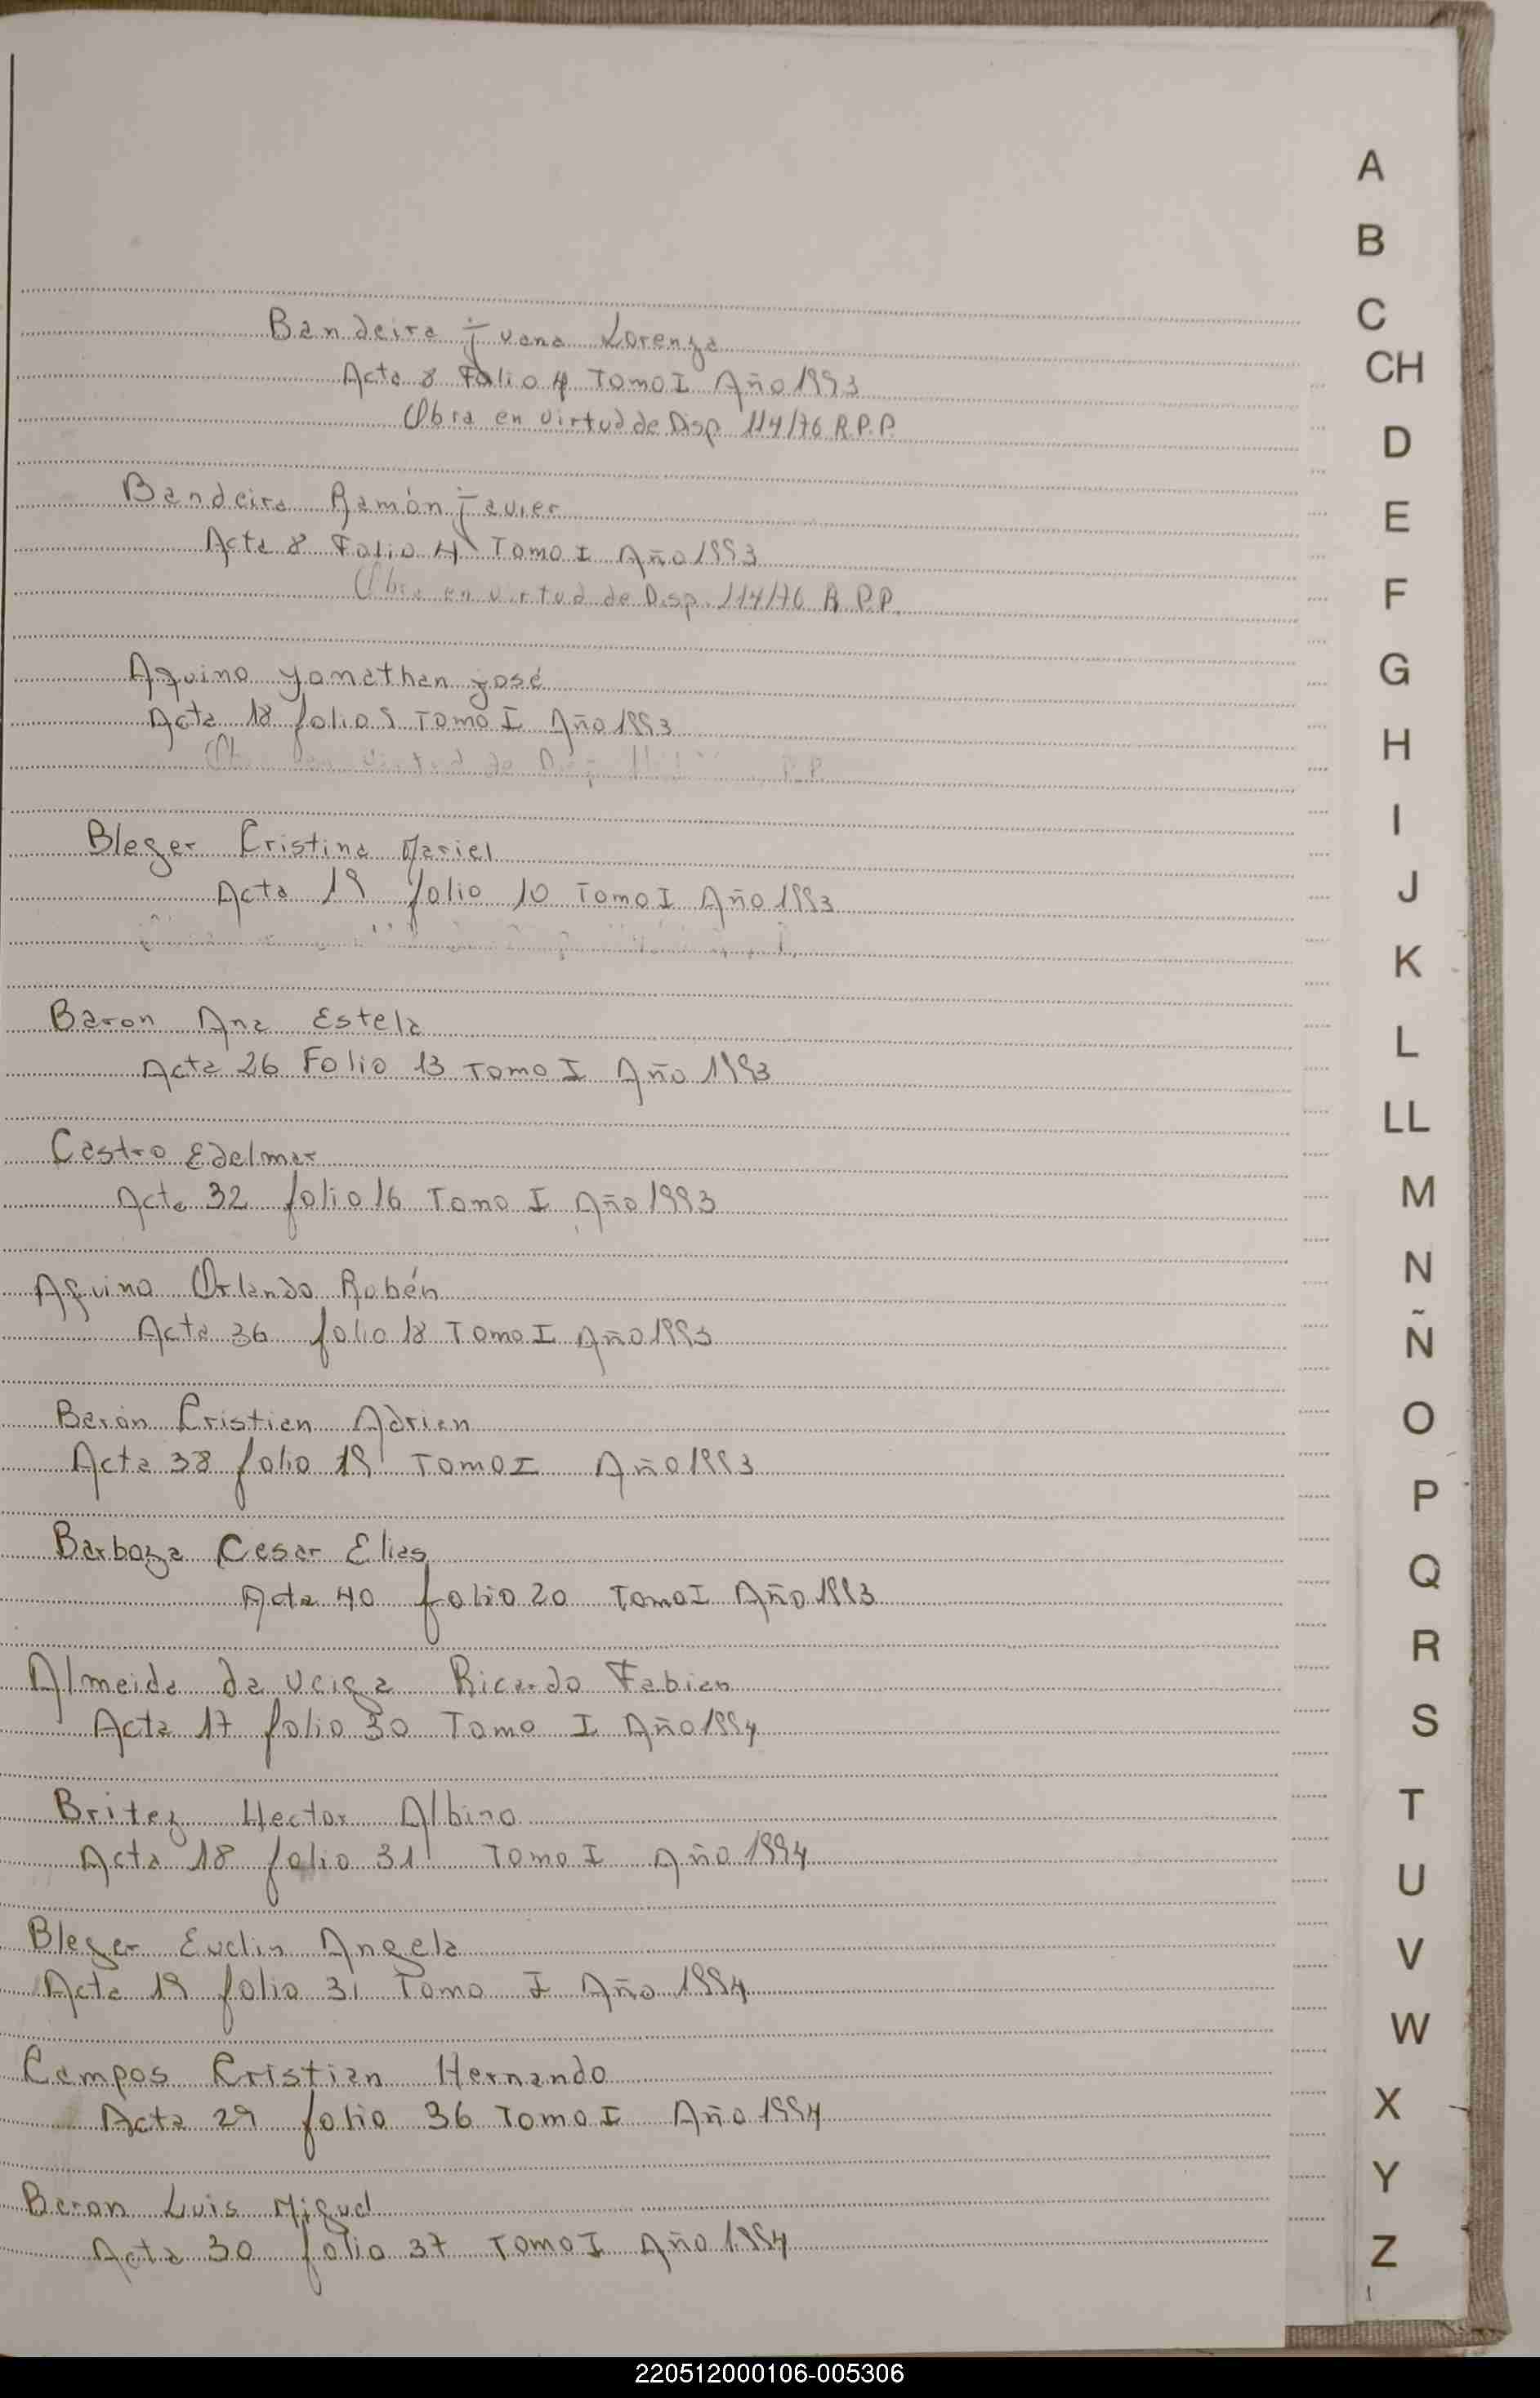 Bandeira Juana Lorenza
Acta 8 Folio 4 Tomo I Año 1993
Obra en virtud de Disp. 114/76 R.P.P.
Bandeira Ramón Javier
Acta 8 Folio 4 Tomo I Año 1993
Obra en virtud de Disp. 114/76 R.P.P.
Aquino Yonathan José
Acta 18 folio 9 Tomo I Año 1993
virtud de Disp. P.P.
Bleger Cristina Mariel
Acta 19 folio 10 Tomo I Año 1993
Baron Ana Estela
Acta 26 Folio 13 Tomo I Año 1993
Castro Edelmar
Acta 32 folio 16 Tomo I Año 1993
Aquino Orlando Rubén
Acta 36 folio 18 Tomo I Año 1993
Barón Cristian Adrian
Acta 38 folio 19 Tomo I Año 1993
Barboza Cesar Elias
Acta 40 folio 20 Tomo I Año 1993
Almeida da veiga Ricardo Fabian
Acta 17 folio 30 Tomo I Año 1994
Britez Hector Albino
Acta 18 folio 31 Tomo I Año 1994
Bleger Euclin Angela
Acta 19 folio 31 Tomo I Año 1994
Campos Cristian Hernando
Acta 29 folio 36 Tomo I Año 1994
Baron Luis Miguel
Acta 30 folio 37 Tomo I Año 1994
A
B
C
CH
D
E
F
G
H
I
J
K
L
LL
M
N
Ñ
O
P
Q
R
S
T
U
V
W
X
Y
Z
220512000106-005306